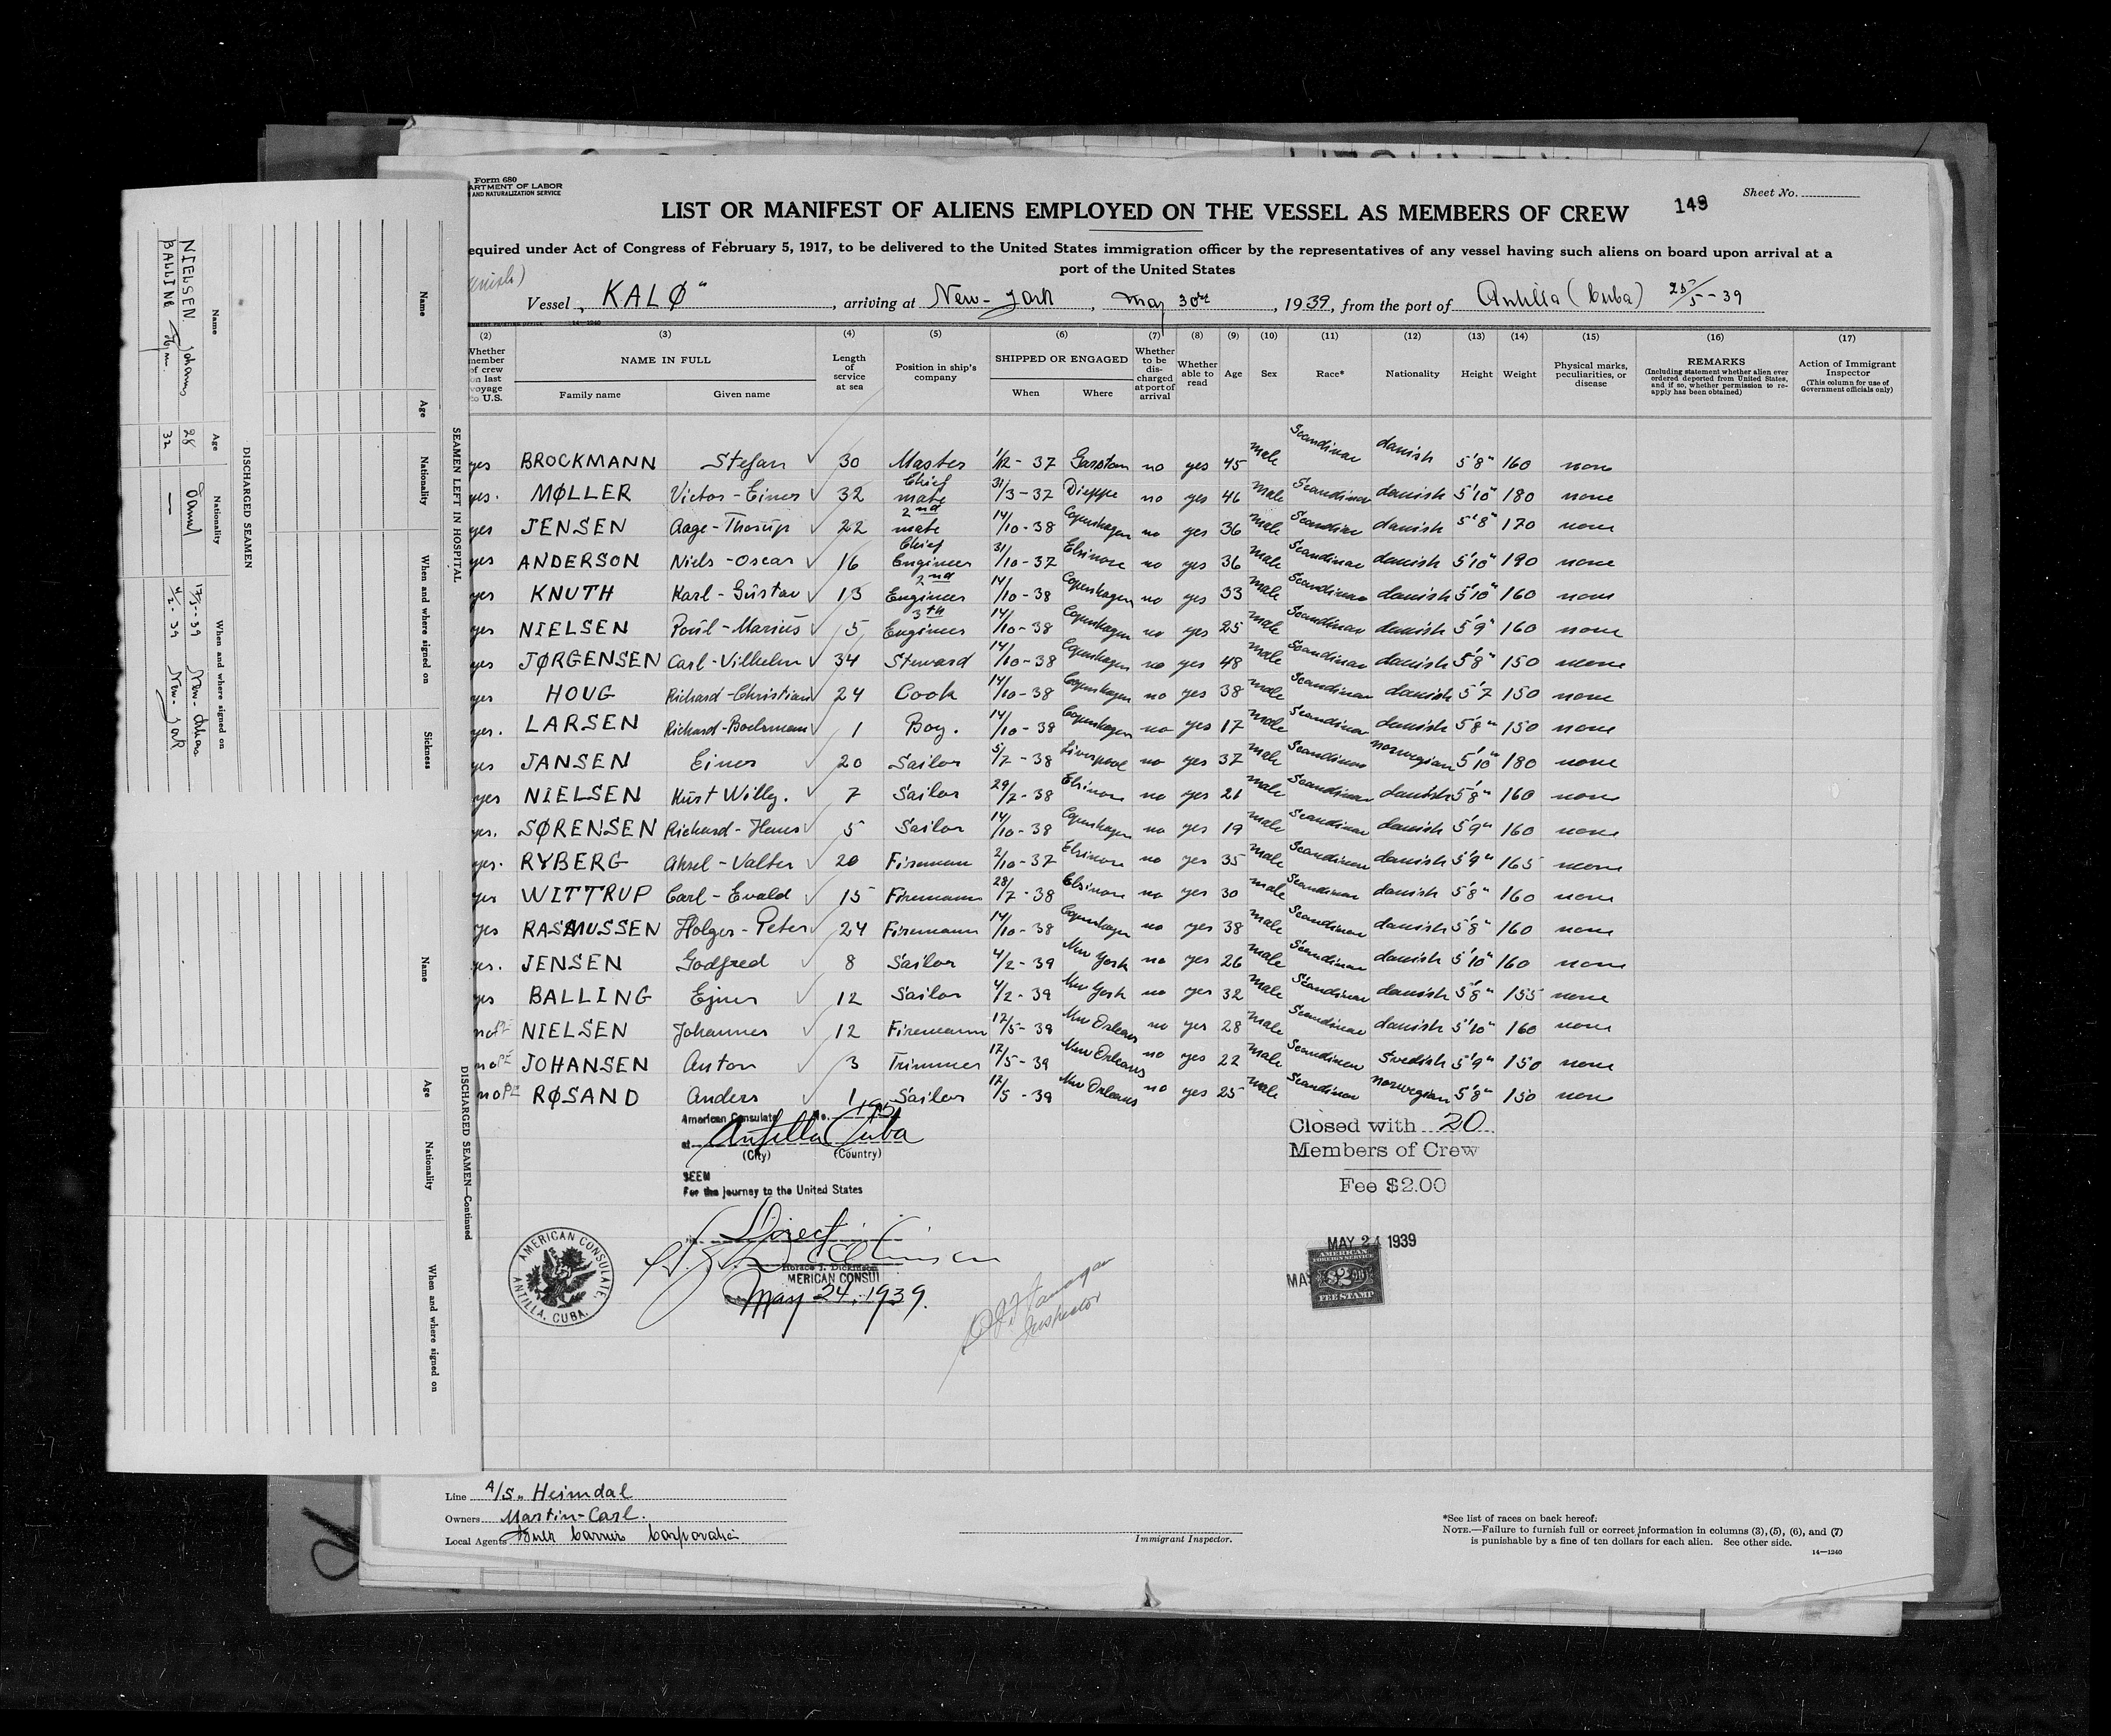 Form 680
ARTMENT OF LABOR
AND NATURALIZATION SERVICE
Sheet No.
149
LIST OR MANIFEST OF ALIENS EMPLOYED ON THE VESSEL AS MEMBERS OF CREW
equired under Act of Congress of February 5, 1917, to be delivered to the United States immigration officer by the representatives of any vessel having such aliens on board upon arrival at a
port of the United States
Vessel „ KALØ", arriving at New-York, May 30, 1939, from the port of Antilla (Cuba) 25/5-39
14-1240
(2) (3) (4) (5) (6) (7) (8) (9) (10) (11) (12) (13) (14) (15) (16) (17)
Whether member of crew on last voyage to U.S.
NAME IN FULL
Family name Given name
Length of service at sea
Position in ship's company
SHIPPED OR ENGAGED
When Where
Whether to be discharged at port of arrival
Whether able to read
Age
Sex
Race*
Nationality
Height
Weight
Physical marks, peculiarities, or disease
REMARKS
(Including statement whether alien ever ordered deported from United States, and if so, whether permission to reapply has been obtained)
Action of Immigrant Inspector
(This column for use of Government officials only)
yes BROCKMANN Stefan 30 Master 1/12-37 Garston no yes 45 male Scandinav danish 5'8" 160 none
yes. MØLLER Victor-Einer 32 Chief mate 31/3-37 Dieppe no yes 46 male Scandinav danish 5'10" 180 none
yes JENSEN Aage-Thorup 22 2nd mate 14/10-38 Copenhagen no yes 36 male Scandinav danish 5'8" 170 none
yes ANDERSON Niels-Oscar 16 Chief Engineer 31/10-37 Elsinore no yes 36 male Scandinav danish 5'10" 190 none
yes KNUTH Karl-Gustav 13 2nd Engineer 14/10-38 Copenhagen no yes 33 male Scandinav danish 5'10" 160 none
yes NIELSEN Poul-Marius 5 3th Engineer 14/10-38 Copenhagen no yes 25 male Scandinav danish 5'9" 160 none
yes JØRGENSEN Carl-Vilhelm 34 Steward 14/10-38 Copenhagen no yes 48 male Scandinav danish 5'8" 150 none
yes HOUG Richard-Christian 24 Cook 14/10-38 Copenhagen no yes 38 male Scandinav danish 5'7 150 none
yes. LARSEN Richard 1 Boy. 14/10-38 Copenhagen no yes 17 male Scandinav danish 5'8" 150 none
yes JANSEN Einer 20 Sailor 5/7-38 Liverpool no yes 37 male Scandinav norwegian 5'10" 180 none
yes NIELSEN Kurt Willy. 7 Sailor 29/7-38 Elsinore no yes 21 male Scandinav danish 5'8" 160 none
yes. SØRENSEN Richard-Hans 5 Sailor 14/10-38 Copenhagen no yes 19 male Scandinav danish 5'9" 160 none
yes. RYBERG Aksel-Valter 20 Firemann 2/10-37 Elsinore no yes 35 male Scandinav danish 5'9" 165 none
yes WITTRUP Carl-Evald 15 Firemann 28/7-38 Elsinore no yes 30 male Scandinav danish 5'8" 160 none
yes RASMUSSEN Holger-Peter 24 Firemann 14/10-38 Copenhagen no yes 38 male Scandinav danish 5'8" 160 none
yes. JENSEN Godfred 8 Sailor 4/2-39 New York no yes 26 male Scandinav danish 5'10" 160 none
yes BALLING Ejner 12 Sailor 4/2-39 New York no yes 32 male Scandinav danish 5'8" 155 none
no PE NIELSEN Johannes 12 Firemann 17/5-39 New Orleans no yes 28 male Scandinav danish 5'10" 160 none
no PE JOHANSEN Anton 3 Trimmer 17/5-39 New Orleans no yes 22 male Scandinav Swedish 5'9" 150 none
no PE RØSAND Anders 1 Sailor 17/5-39 New Orleans no yes 25 male Scandinav norwegian 5'8" 150 none
American Consulate No.
at Antilla Cuba
(City) (Country)
SEEN
For the journey to the United States
Direct
Horace J. Dickinson
MERICAN CONSUL
May 24, 1939.
AMERICAN CONSULATE.
ANTILLA, CUBA.
Inspector
Closed with 20
Members of Crew
Fee $2.00
MAY 24 1939
AMERICAN
FOREIGN SERVICE
$2.00
FEE STAMP
MA
Line A/S. Heimdal
Owners Martin-Carl.
Local Agents Carriers Corporation
Immigrant Inspector.
*See list of races on back hereof.
NOTE.—Failure to furnish full or correct information in columns (3), (5), (6), and (7)
is punishable by a fine of ten dollars for each alien. See other side.
14—1240
SEAMEN LEFT IN HOSPITAL
Name Age Nationality When and where signed on Sickness
DISCHARGED SEAMEN
Name Age Nationality When and where signed on
NIELSEN Johannes 28 Dansk 17/5-39 New-Orleans
BALLING Ejner 32 — 4/2-39 New-York
DISCHARGED SEAMEN—Continued
Name Age Nationality When and where signed on